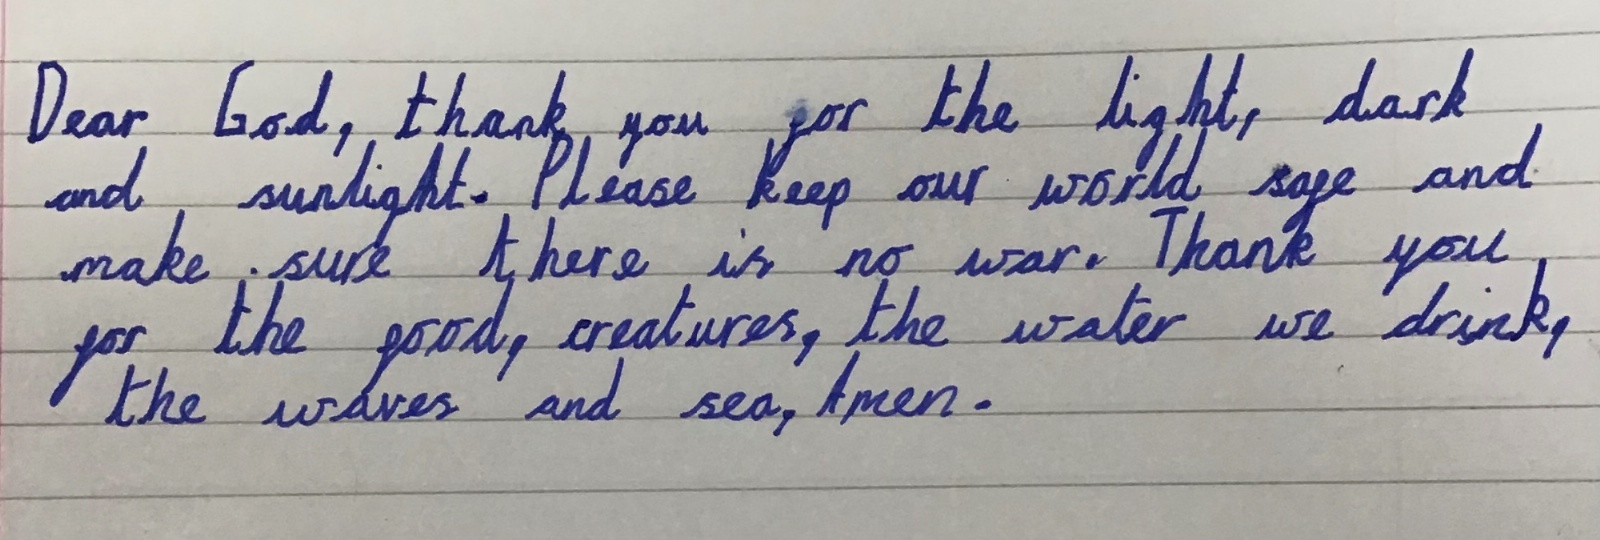 Dear God, thank you for the light, dark
and sunlight. Please keep our world safe and
make sure there is no war. Thank you
for the food, creatures, the water we drink,
the waves and sea, Amen.